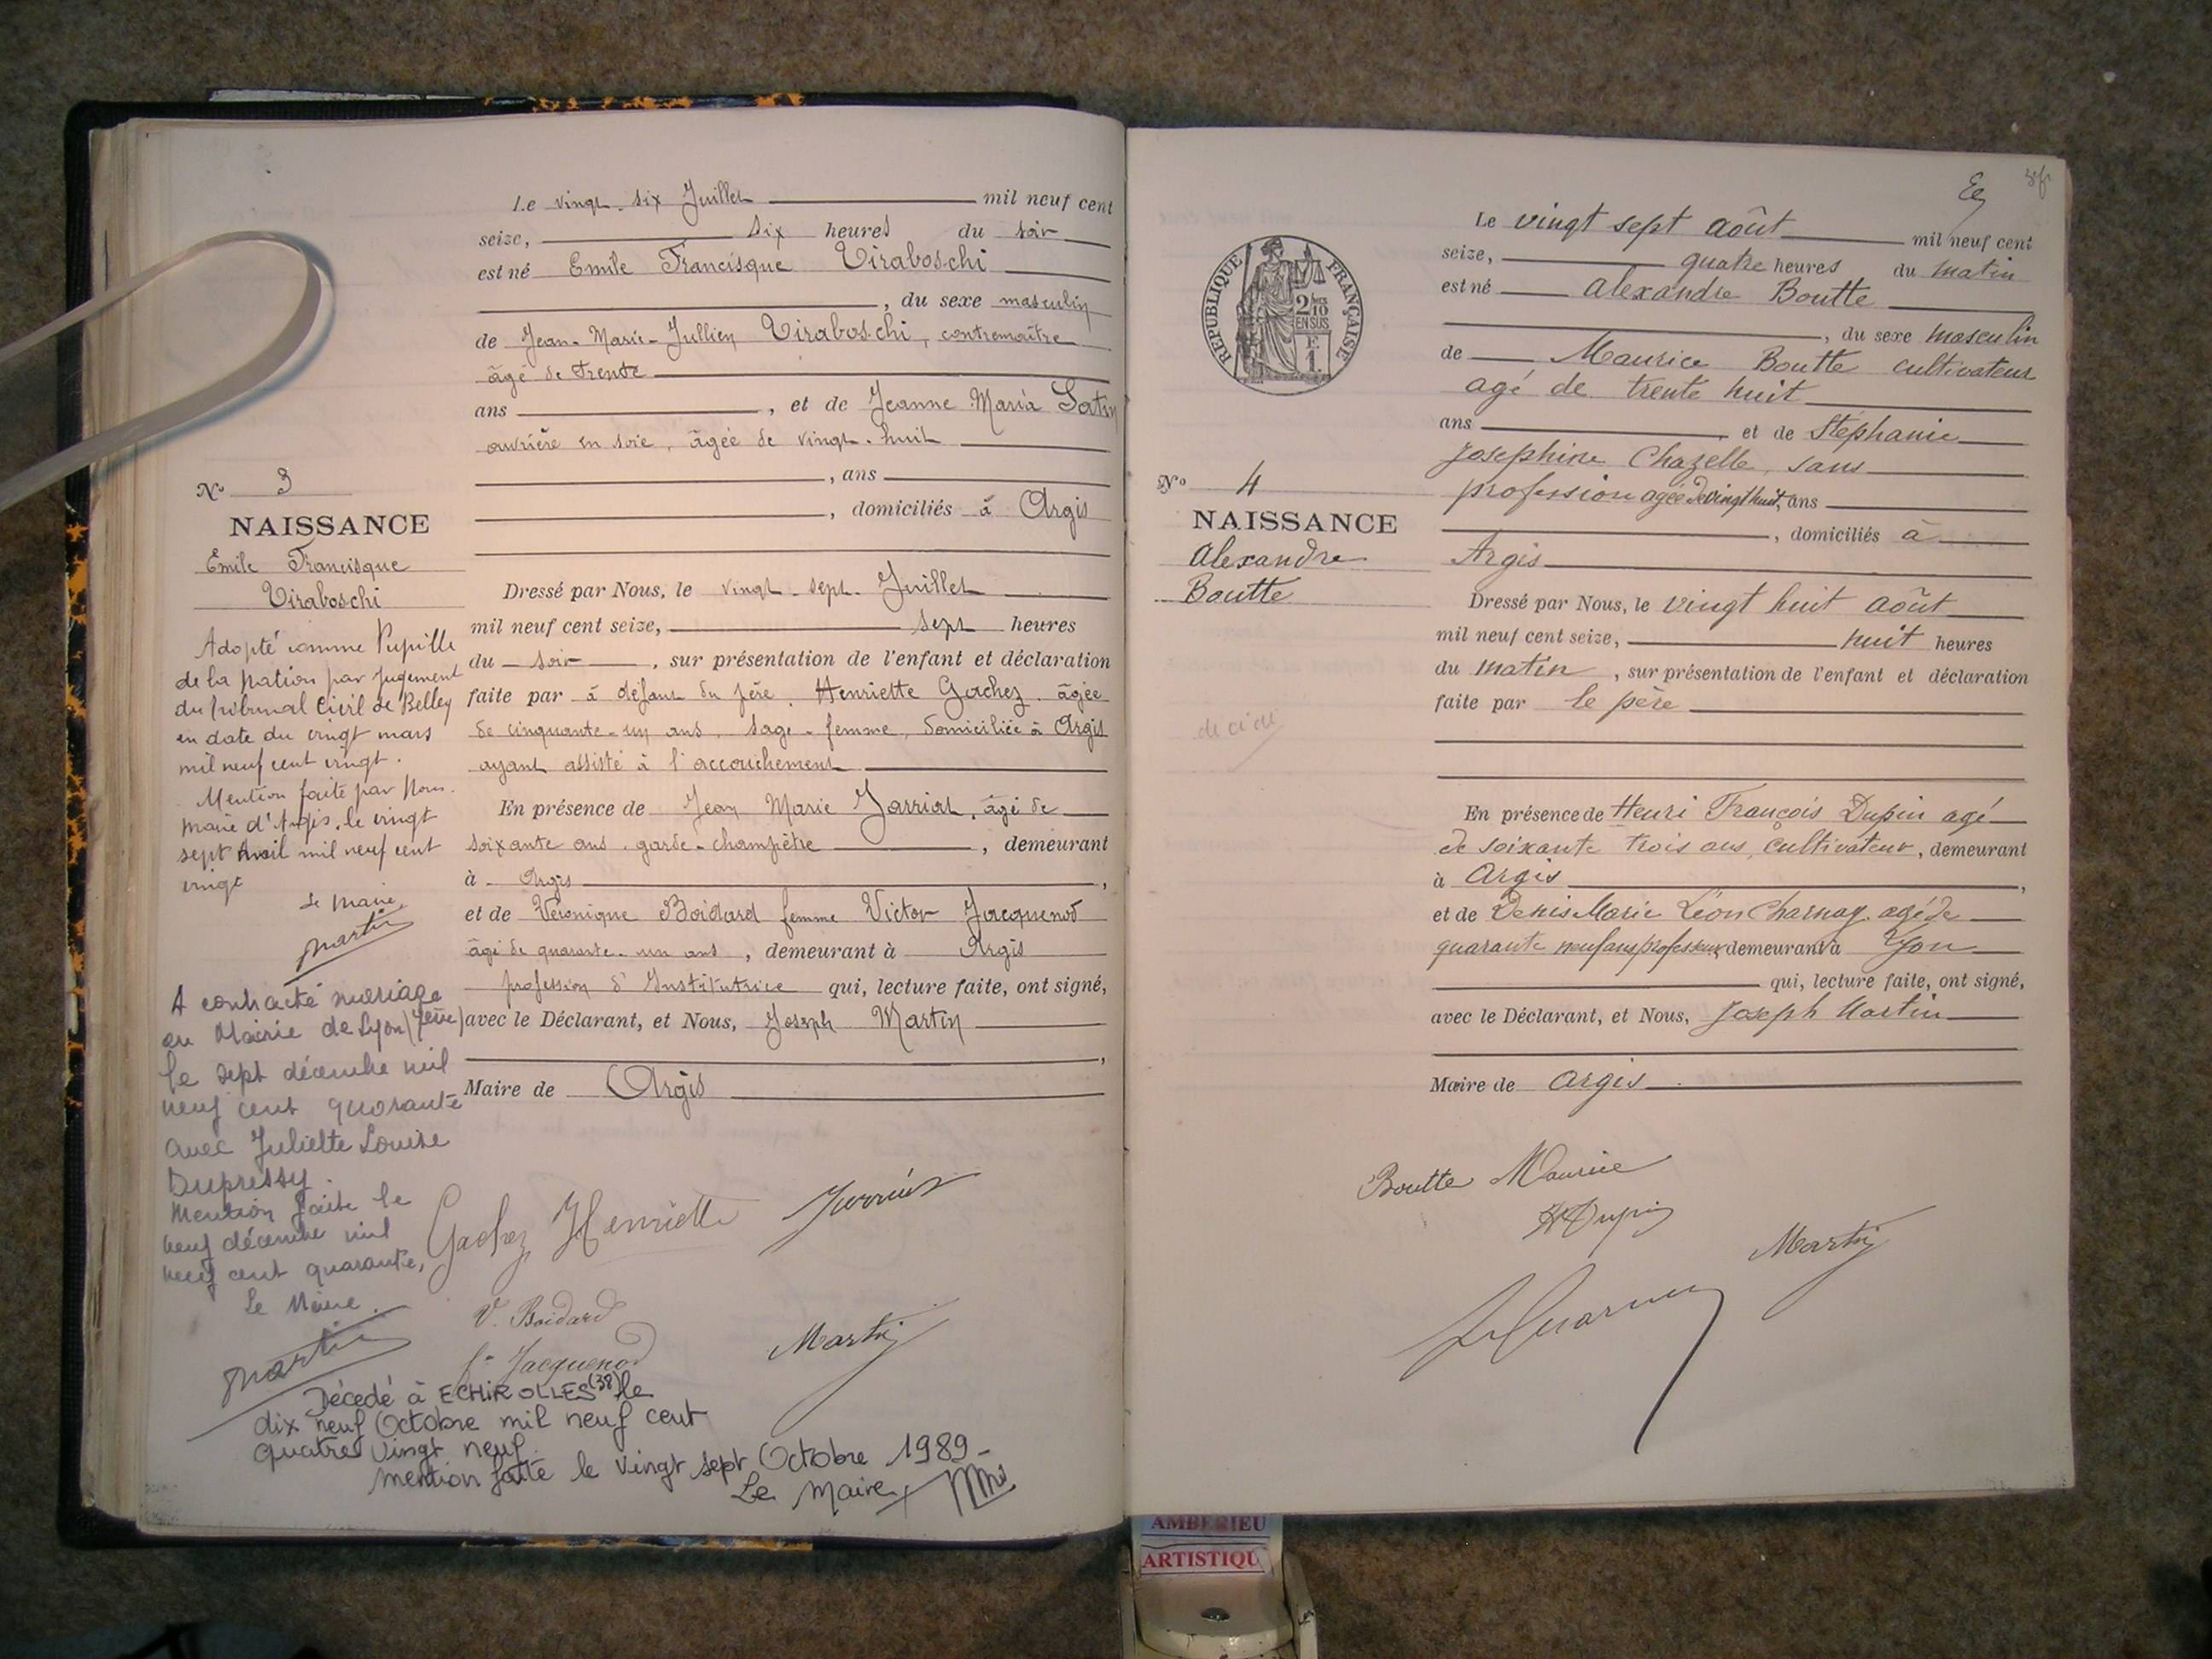 Le vingt-six Juillet mil neuf cent
seize, six heures du soir
est né Emile Francisque Tiraboschi
, du sexe masculin
de Jean-Marie-Jullien Tiraboschi, contremaître
âgé de trente
ans , et de Jeanne Maria
ouvrière en soie, âgée de vingt-huit
, ans
, domiciliés à Argis
N° 3
NAISSANCE
Emile Francisque
Tiraboschi
Dressé par Nous, le vingt-sept Juillet
mil neuf cent seize, sept heures
du soir , sur présentation de l'enfant et déclaration
faite par à défaut du père, Henriette Gachez, âgée
de cinquante-un ans, sage-femme, domiciliée à Argis
ayant assisté à l'accouchement
En présence de Jean Marie Jarriat, âgé de
soixante ans, garde-champêtre , demeurant
à Argis ,
et de Véronique Boidard femme Victor Jacquenod
âgé de quarante-un ans , demeurant à Argis
profession d'Institutrice qui, lecture faite, ont signé,
avec le Déclarant, et Nous, Joseph Martin
,
Maire de Argis
Adopté comme Pupille
de la Nation par jugement
du tribunal Civil de Belley
en date du vingt mars
mil neuf cent vingt.
Mention faite par Nous
Maire d'Argis, le vingt
sept Avril mil neuf cent
vingt
Le Maire,
Martin
A contracté mariage
en Mairie de Lyon
le sept décembre mil
neuf cent quarante
avec Juliette Louise
Dupressy.
Mention faite le
neuf décembre mil
neuf cent quarante,
Le Maire.
Martin
Gachez Henriette Jarriat
V. Boidard
fe Jacquenod
Martin
Décédé à ECHIROLLES (38) le
dix neuf Octobre mil neuf cent
quatre vingt neuf.
Mention faite le vingt sept Octobre 1989-
Le Maire
Le vingt sept août mil neuf cent
seize, quatre heures du matin
est né Alexandre Boutte
, du sexe masculin
de Maurice Boutte cultivateur
agé de trente huit
ans et de Stéphanie
Josephine Chazelle, sans
profession agée de vingt huit, ans
, domiciliés à
Argis
RÉPUBLIQUE FRANÇAISE
2/10
EN SUS
F.
1.
N° 4
NAISSANCE
Alexandre
Boutte
Dressé par Nous, le vingt huit août
mil neuf cent seize, huit heures
du matin , sur présentation de l'enfant et déclaration
faite par le père
En présence de Henri François Dupin agé
de soixante trois ans, cultivateur, demeurant
à Argis ,
et de Denis Marie Léon Charnay agé de
quarante neuf ans, professeur, demeurant à Lyon
qui, lecture faite, ont signé,
avec le Déclarant, et Nous, Joseph Martin
Maire de Argis
Boutte Maurice
H Dupin
Martin
AMBERIEU
ARTISTIQU